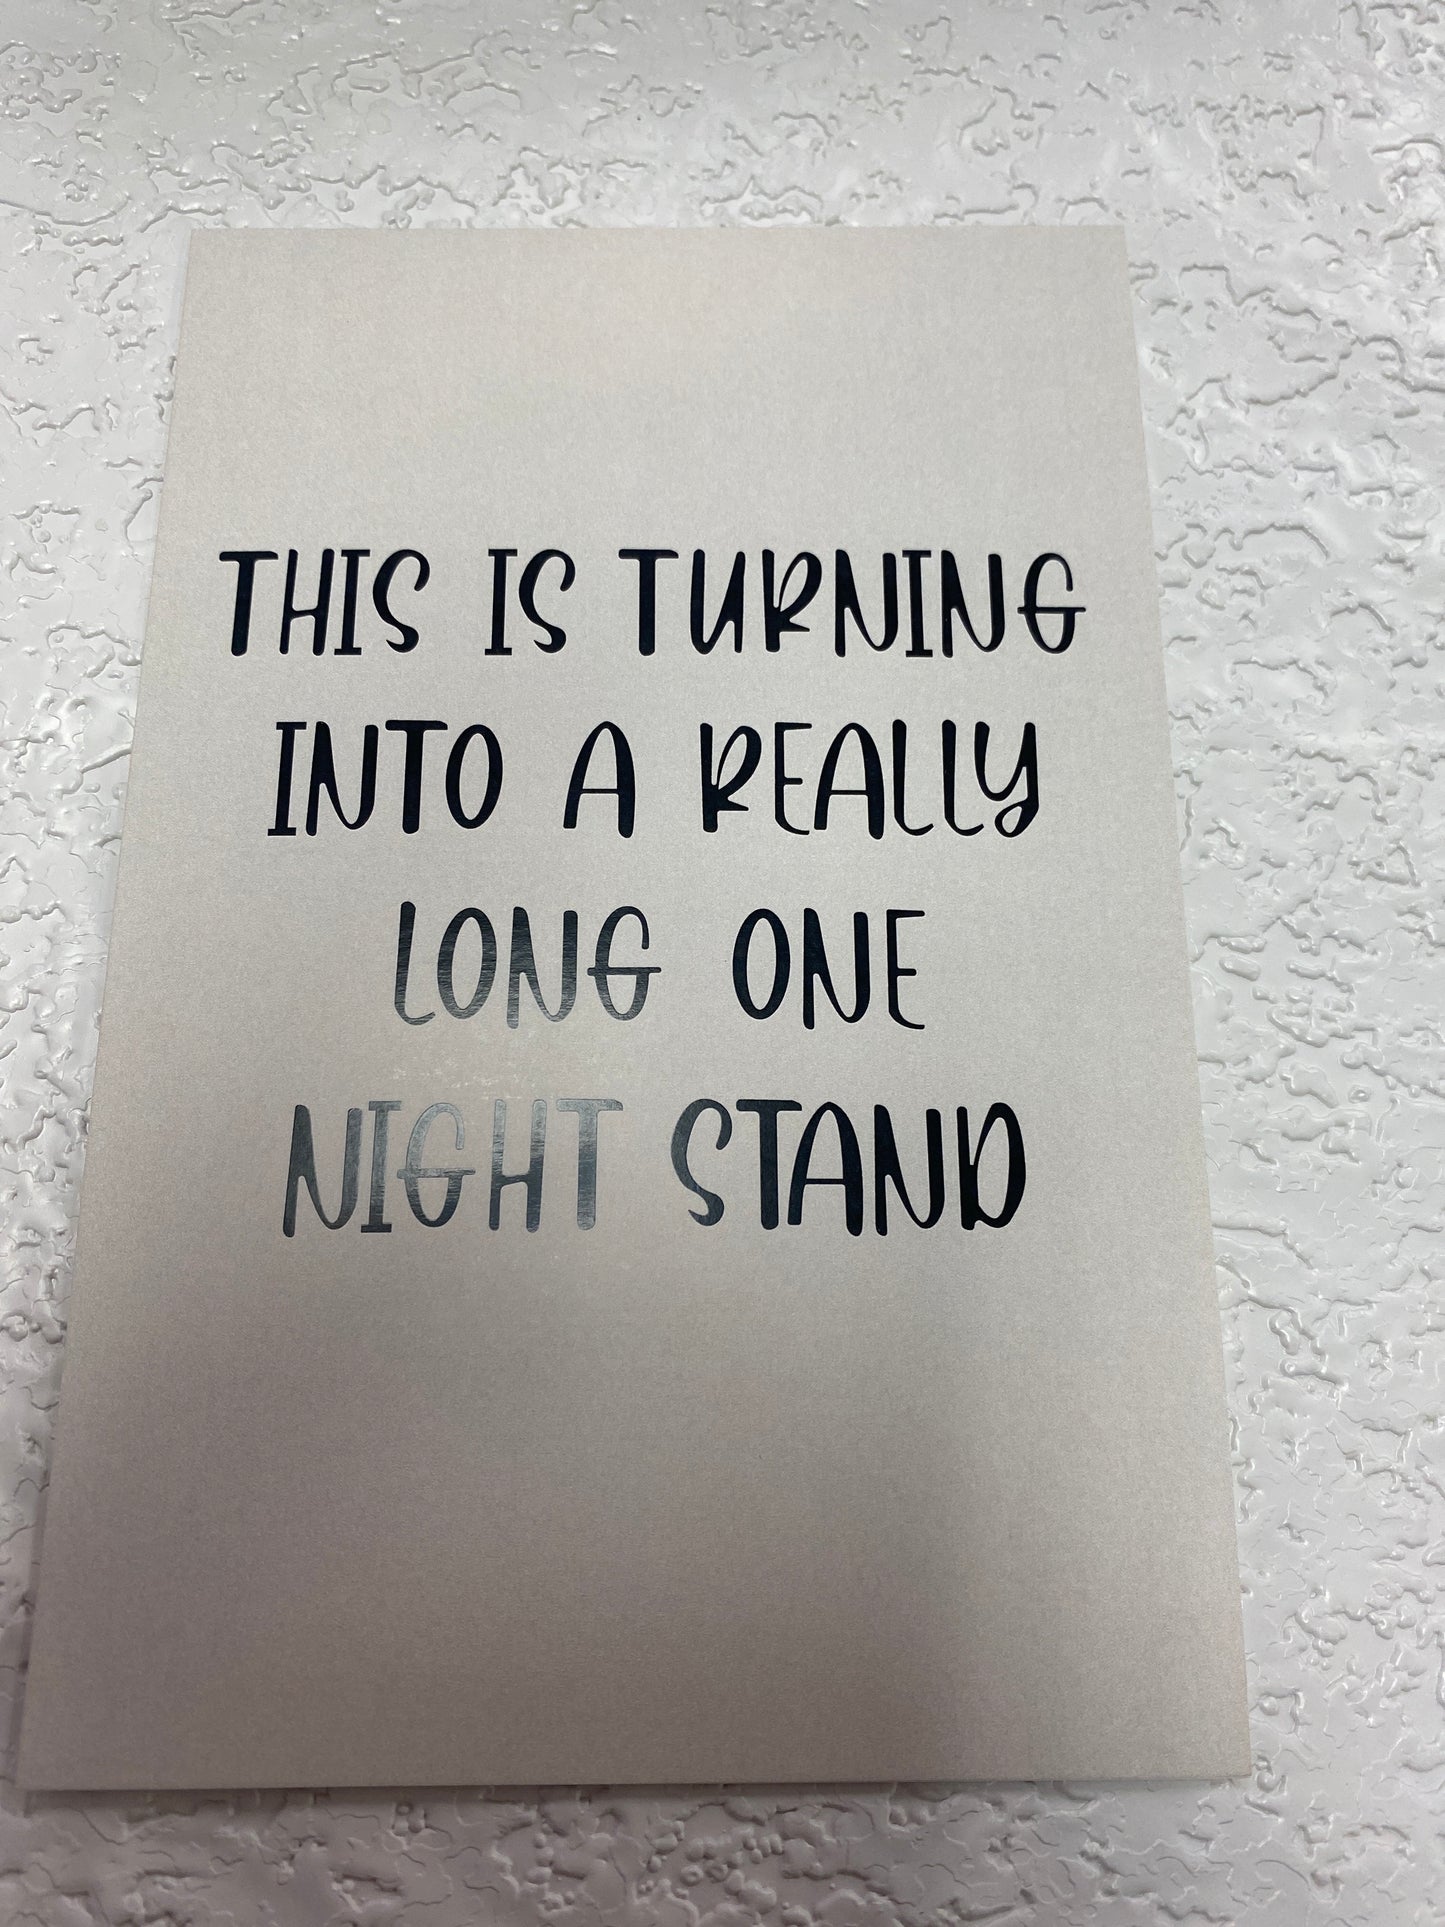 THIS IS TURNING
INTO A REALLY
LONG ONE
NIGHT STAND